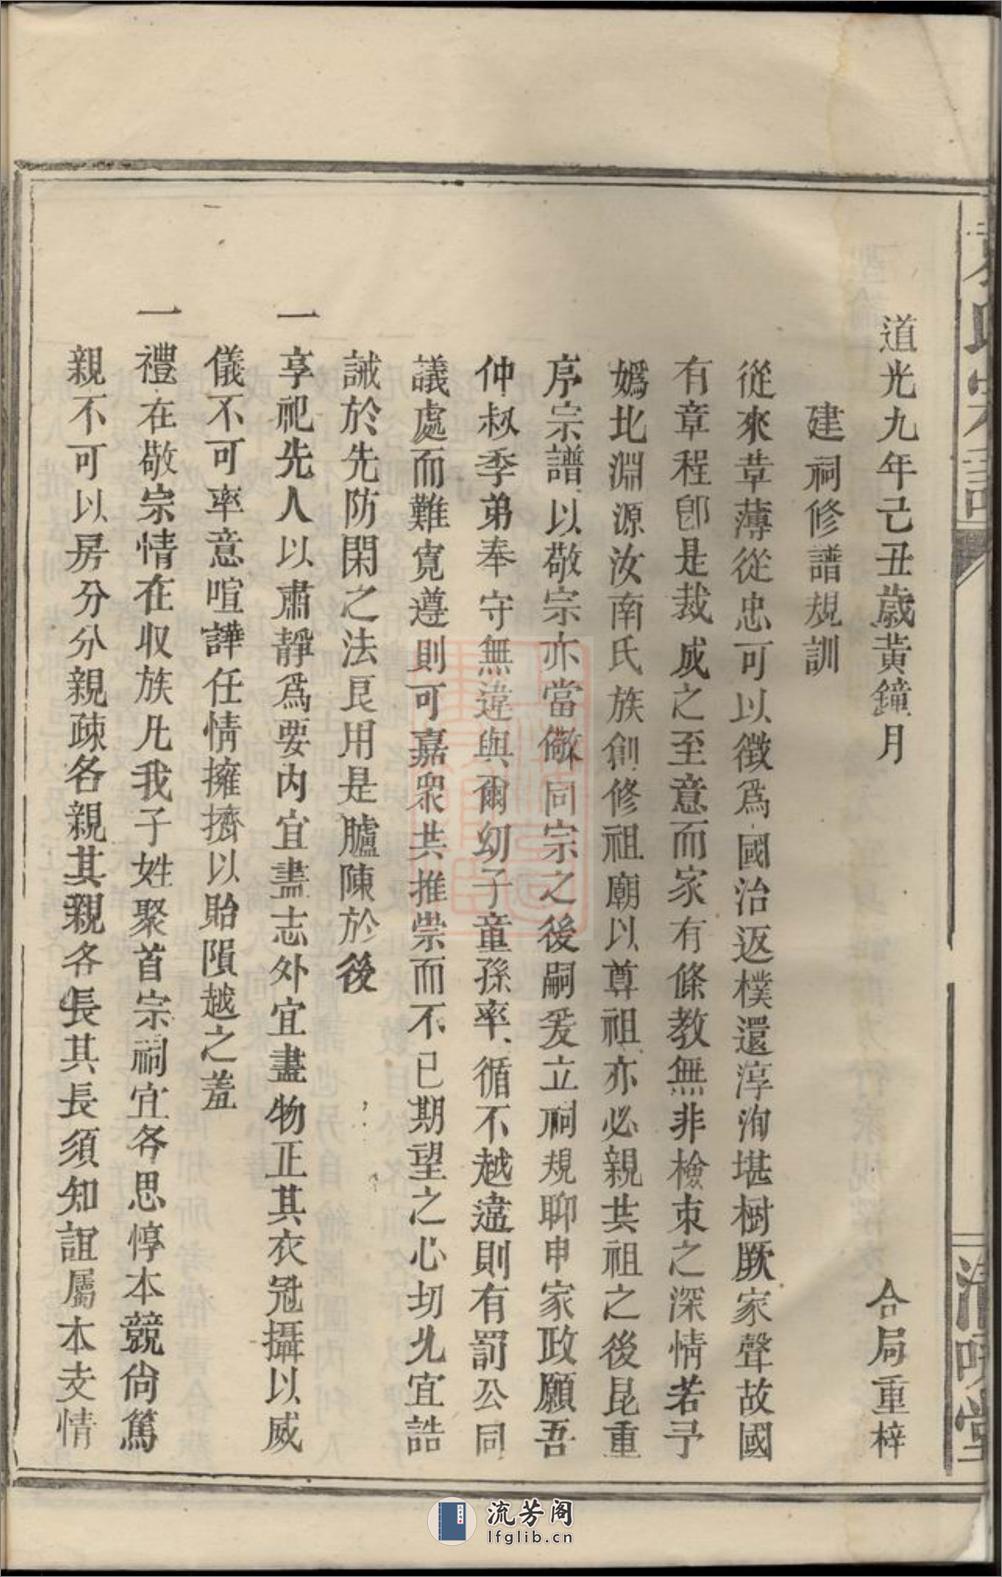 道光九年己丑歲黃鐘月 合局重梓
建祠修譜規訓
從來草薄從忠可以徵爲國治返樸還淳洵堪樹厥家聲故國
有章程卽是裁成之至意而家有條教無非檢束之深情若予
嬀北淵源汝南氏族創修祖廟以尊祖亦必親共祖之後昆重
序宗譜以敬宗亦當儆同宗之後嗣爰立祠規聊申家政願吾
仲叔季弟奉守無違與爾幼子童孫率循不越違則有罰公同
議處而難寬遵則可嘉衆共推崇而不已期望之心切尤宜誥
誡於先防閑之法良用是臚陳於後
一享祀先人以肅靜爲要内宜盡志外宜盡物正其衣冠攝以威
儀不可率意喧譁任情擁擠以貽隕越之羞
一禮在敬宗情在収族凡我子姓聚首宗祠宜各思惇本競尙篤
親不可以房分分親疎各親其親各長其長須知誼屬本支情
流芳阁
lfglib.cn